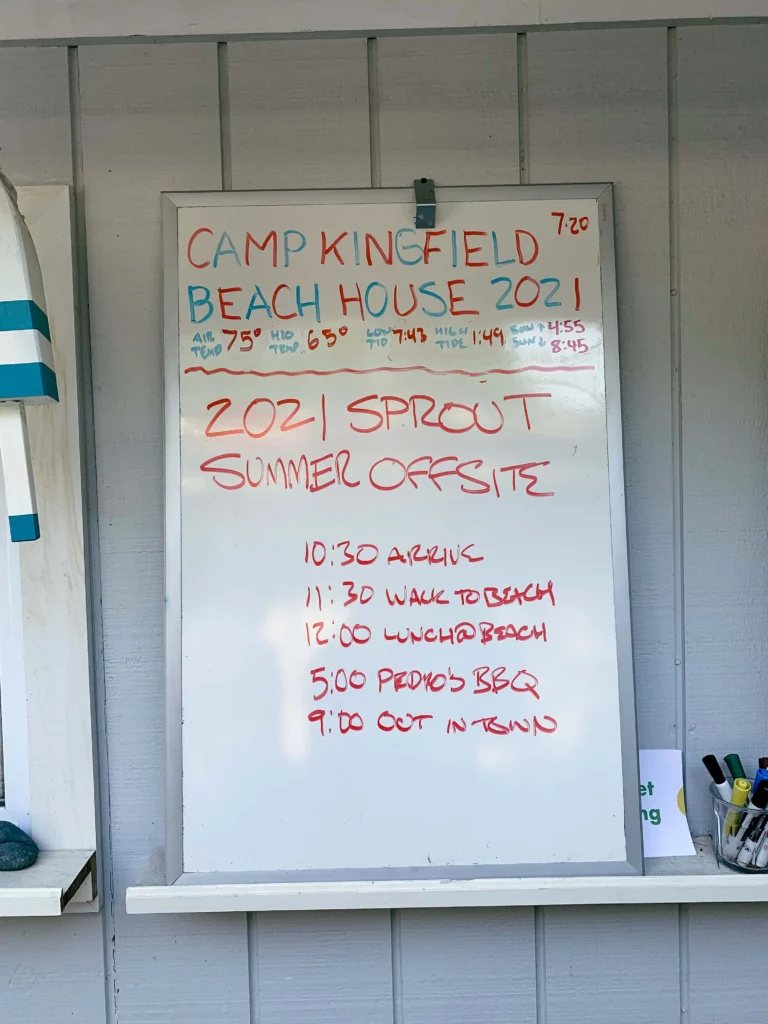 7.20
CAMP KINGFIELD
BEACH HOUSE 2021
AIR TEMP 75° H2O TEMP 65° LOW TID. 7:43 HIGH TIDE 1:49 SUN↑ 4:55
SUN↓ 8:45
2021 SPROUT
SUMMER OFFSITE
10:30 ARRIVE
11:30 WALK TO BEACH
12:00 LUNCH @ BEACH
5:00 PEDRO'S BBQ
9:00 OUT IN TOWN
et
ng